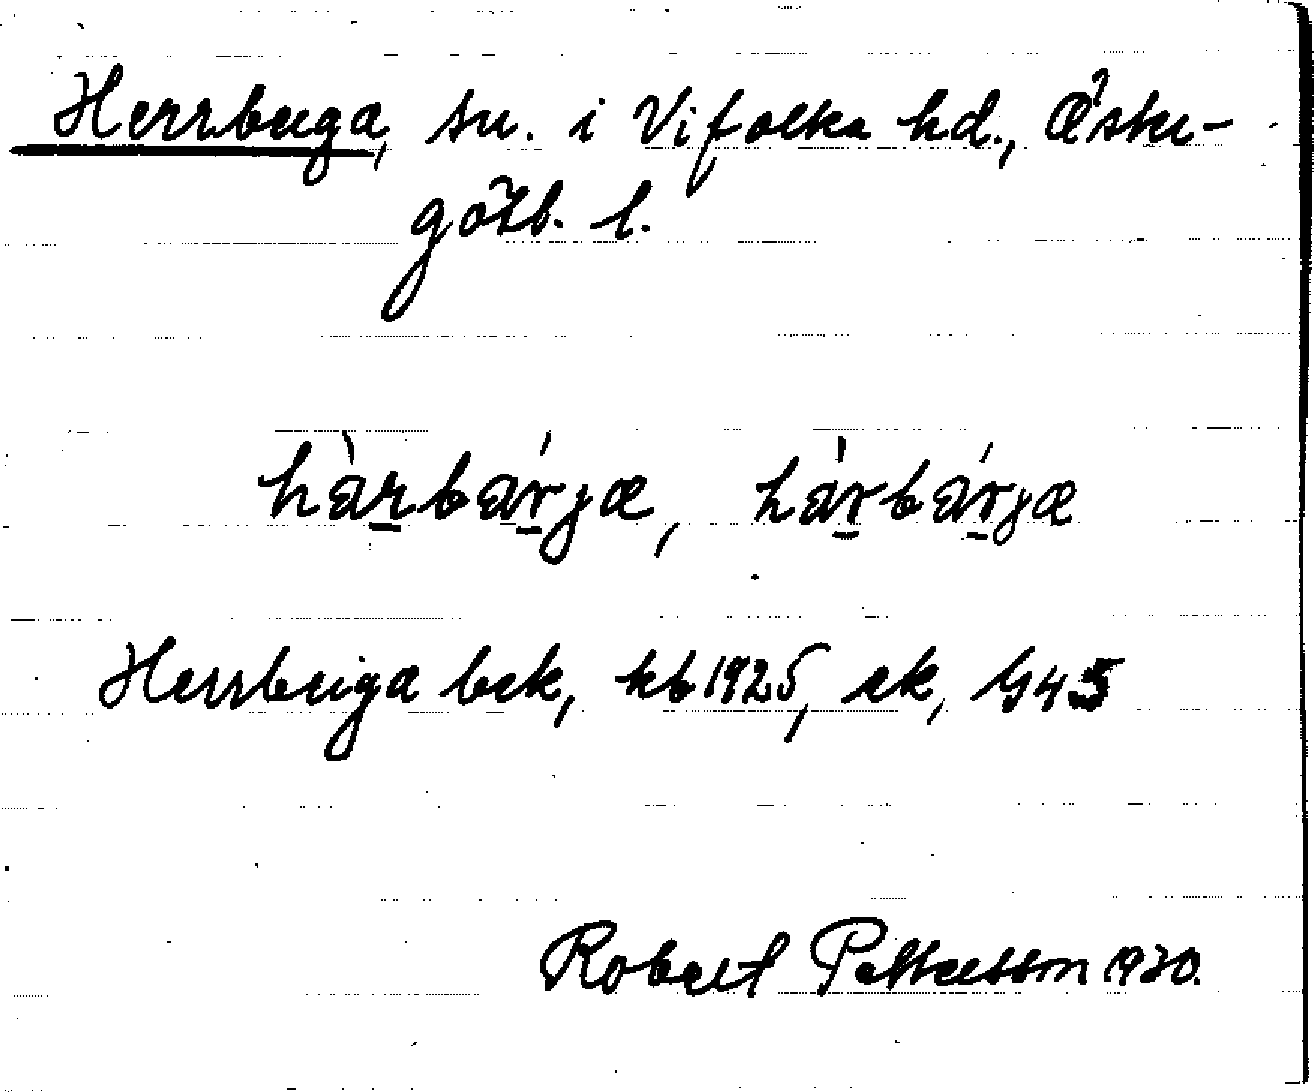 Herrberga, sn. i Vifolka hd., Öster-
götl. l.
hàrbárjæ, hárbárjæ
Herrberga bek, kb 1925, ek, G45
Robert Pettersson 1930.